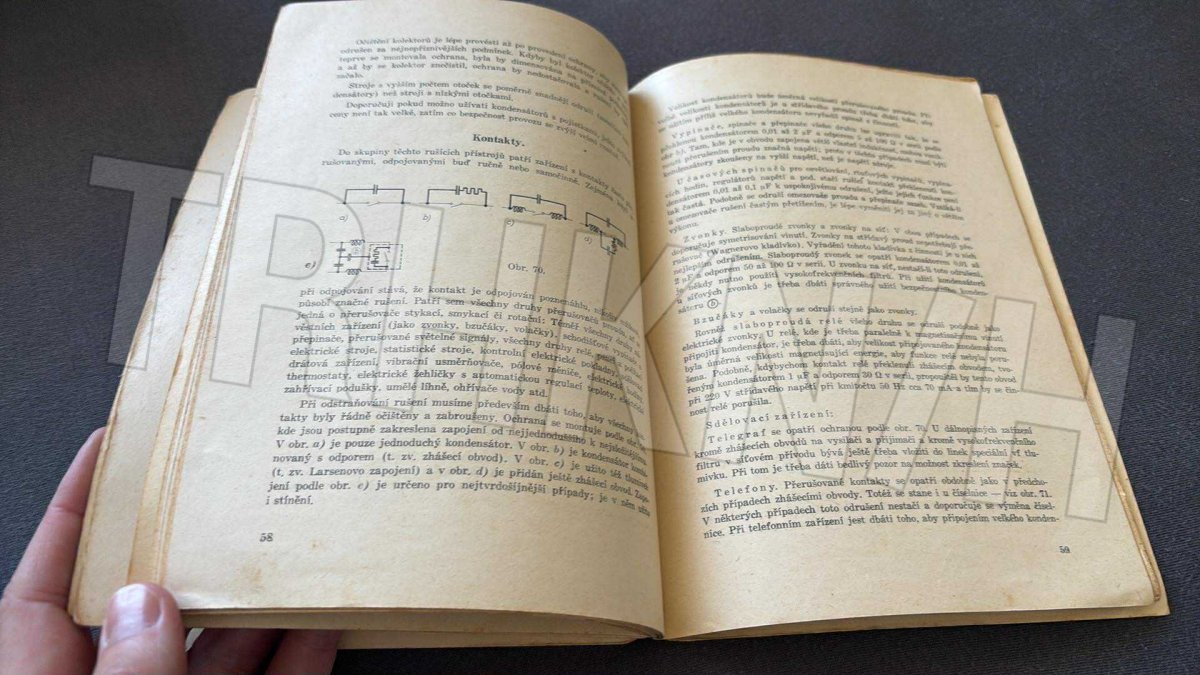 Očištění kolektorů je lépe provésti až po provedení ochrany, aby
odrušen za nejnepříznivějších podmínek. Kdyby byl kolektor
teprve se montovala ochrana, byla by dimensována na příznivé
a až by se kolektor znečistil, ochrana by nedostačovala a rušení
začalo.
Stroje s vyšším počtem otoček se poměrně snadněji odruší (menšími
densátory) než stroji s nízkými otočkami.
Doporučuji pokud možno užívati kondensátorů s pojistkami, jejichž
ceny není tak velké, zatím co bezpečnost provozu se zvýší velmi
Kontakty.
Do skupiny těchto rušících přístrojů patří zařízení s kontakty
rušovanými, odpojovanými buď ručně nebo samočinně. Zejména když
a)
b)
c)
d)
e)
Obr. 70.
při odpojování stává, že kontakt je odpojován poznenáhlu,
působí značné rušení. Patří sem všechny druhy přerušovačů proudu,
jedná o přerušovače stykací, smykací či rotační: Téměř všechny druhy
věstních zařízení (jako zvonky, bzučáky, volačky), schodišťové vypínače,
přepínače, přerušované světelné signály, všechny druhy relé,
elektrické stroje, statistické stroje, kontrolní elektrické pokladny,
drátová zařízení, vibrační usměrňovače, pólové měniče, elektrické
thermostaty, elektrické žehličky s automatickou regulací teploty, elektrické
zahřívací podušky, umělé líhně, ohřívače vody atd.
Při odstraňování rušení musíme především dbáti toho, aby všechny
takty byly řádně očištěny a zabroušeny. Ochrana se montuje podle obr.
kde jsou postupně zakreslena zapojení od nejjednoduššího k nejsložitějšímu.
V obr. a) je pouze jednoduchý kondensátor. V obr. b) je kondensátor
novaný s odporem (t. zv. zhášecí obvod). V obr. c) je užito též tlumivek
(t. zv. Larsenovo zapojení) a v obr. d) je přidán ještě zhášecí obvod. Zapo-
jení podle obr. e) je určeno pro nejtvrdošíjnější případy; je v něm užito
i stínění.
58
Velikost kondensátorů bude úměrná velikosti přerušovaného proudu. Při
volbě velikosti kondensátorů je u střídavého proudu třeba dbáti toho, aby
se užitím příliš velkého kondensátoru nevyřadil spínač z činnosti.
Vypínače, spínače a přepínače všeho druhu lze upravit tak, že se
přeblokují kondensátorem 0,01 až 2 μF a odporem 5 až 100 Ω v serii podle
obr. b). Tam, kde je v obvodu zapojena větší vlastní indukčnost, mohou vznik-
nouti přerušením proudu značná napětí; proto v těchto případech musí býti
kondensátory zkoušeny na vyšší napětí, než je napětí zdroje.
U časových spínačů pro osvětlování, říčových vypínačů, vypína-
cích hodin, regulátorů napětí a pod. stačí rušící kontakt přeblokovat kon-
densátorem 0,01 až 0,1 μF k uspokojivému odrušení, jeho jejich funkce není
tak častá. Podobně se odruší omezovače proudu a přepínače sazeb. Vzniká-li
u omezovače rušení častým přetížením, je lépe vyměniti jej za jiný o větším
výkonu.
Zvonky. Slaboproudé zvonky a zvonky na síť: V obou případech se
doporučuje symetrisování vinutí. Zvonky na střídavý proud nepotřebují pře-
rušovač (Wagnerovo kladívko). Vyřadění tohoto kladívka z činnosti je u nich
nejlepším odrušením. Slaboproudý zvonek se opatří kondensátorem 0,01 až
2 μF a odporem 50 až 100 Ω v serii. U zvonku na síť, nestačí-li toto odrušení,
je někdy nutno použíti vysokofrekvenčních filtrů. Při užití kondensátorů
u síťových zvonků je třeba dbáti správného užití bezpečnostního konden-
sátoru ⓑ.
Bzučáky a volačky se odruší stejně jako zvonky.
Rovněž slaboproudá relé všeho druhu se odruší podobně jako
elektrické zvonky. U relé, kde je třeba paralelně k magnetisačnímu vinutí
připojiti kondensátor, je třeba dbáti, aby velikost připojovaného kondensátoru
byla úměrná velikosti magnetisující energie, aby funkce relé nebyla poru-
šena. Podobně, kdybychom kontakt relé překlenuli zhášecím obvodem, tvo-
řeným kondensátorem 1 μF a odporem 30 Ω v serii, propouštěl by tento obvod
při 220 V střídavého napětí při kmitočtu 50 Hz cca 70 mA a tím by se čin-
nost relé porušila.
Sdělovací zařízení:
Telegraf se opatří ochranou podle obr. 70. U dálnopisných zařízení
kromě zhášecích obvodů na vysílači a přijímači a kromě vysokofrekvenčního
filtru v síťovém přívodu bývá ještě třeba vložiti do linek speciální vf tlu-
mivku. Při tom je třeba dáti bedlivý pozor na možnost zkreslení značek.
Telefony. Přerušované kontakty se opatří obdobně jako v předcho-
zích případech zhášecími obvody. Totéž se stane i u číselnice — viz obr. 71.
V některých případech toto odrušení nestačí a doporučuje se výměna čísel-
nice. Při telefonním zařízení jest dbáti toho, aby připojením velkého konden-
59